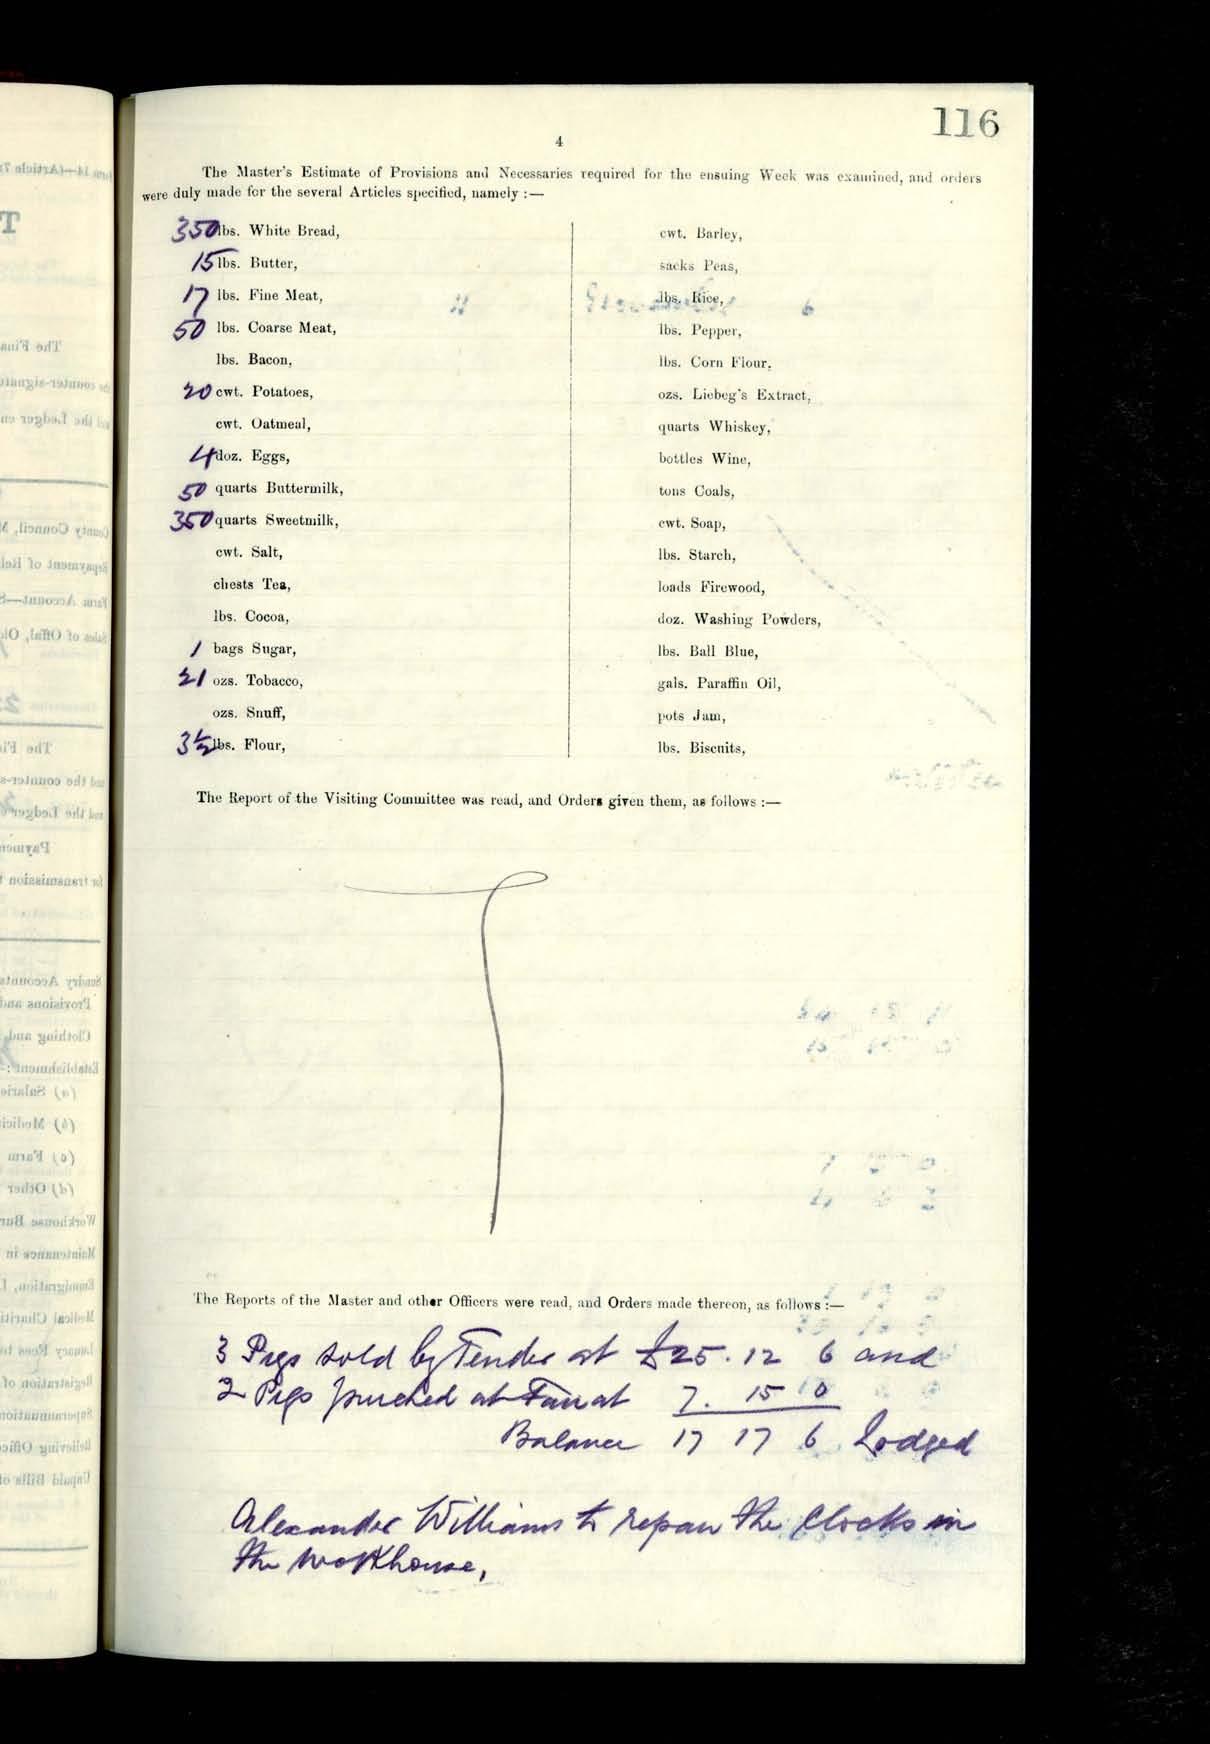 116
4
The Master's Estimate of Provisions and Necessaries required for the ensuing Week was examined, and orders
were duly made for the several Articles specified, namely :—
350 lbs. White Bread,
15 lbs. Butter,
17 lbs. Fine Meat,
50 lbs. Coarse Meat,
lbs. Bacon,
20 cwt. Potatoes,
cwt. Oatmeal,
4 doz. Eggs,
50 quarts Buttermilk,
350 quarts Sweetmilk,
cwt. Salt,
chests Tea,
lbs. Cocoa,
1 bags Sugar,
21 ozs. Tobacco,
ozs. Snuff,
3½ lbs. Flour,
cwt. Barley,
sacks Peas,
lbs. Rice,
lbs. Pepper,
lbs. Corn Flour,
ozs. Liebeg's Extract,
quarts Whiskey,
bottles Wine,
tons Coals,
cwt. Soap,
lbs. Starch,
loads Firewood,
doz. Washing Powders,
lbs. Ball Blue,
gals. Paraffin Oil,
pots Jam,
lbs. Biscuits,
The Report of the Visiting Committee was read, and Orders given them, as follows :—
The Reports of the Master and other Officers were read, and Orders made thereon, as follows :—
3 Pigs sold by Tender at £25. 12 6 and
2 Pigs purched at Fair at 7. 15 0
Balance 17 17 6 Lodged
Alexander Williams to repair the Clocks in
the Workhouse,